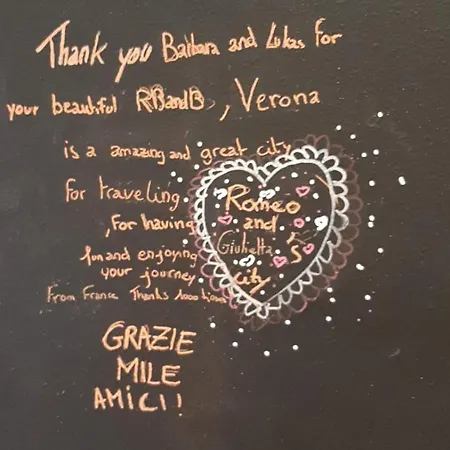 Thank you Barbara and Lukas for
your beautiful RBandB, Verona
is a amazing and great city
for traveling
, for having
fun and enjoying
your journey
From France Thanks 1000 times
GRAZIE
MILE
AMICI!
Romeo
and
Giulietta
's
city